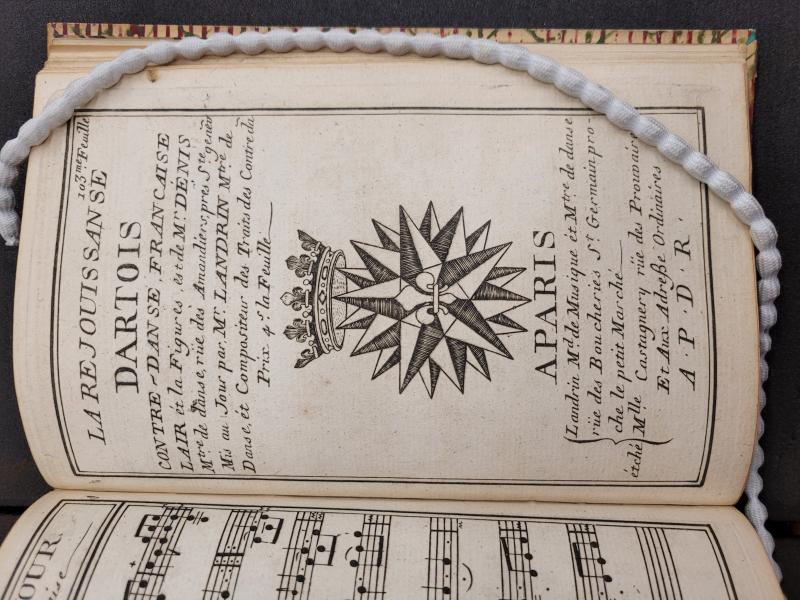 103.me Feuille
LA REJOUISSANSE
DARTOIS
CONTRE-DANSE, FRANCAISE
LAIR ét la Figures est de Mr. DENIS
Mtre de danse, rüe des Amandiers, pres Ste. genèv
Mis au Jour par Mr. LANDRIN Mtre de
Danse, ét Compositeur des Traits des Contre da
Prix 4 s. la Feuille
APARIS
Landrin Md. de Musique ét Mtre de danse
rüe des Boucheries St. Germain pro-
che le petit Marché
étché Mlle Castagnery rüe des Prouvaire
Et Aux Adreße Ordinaires
A. P. D. R.
OUR
aise